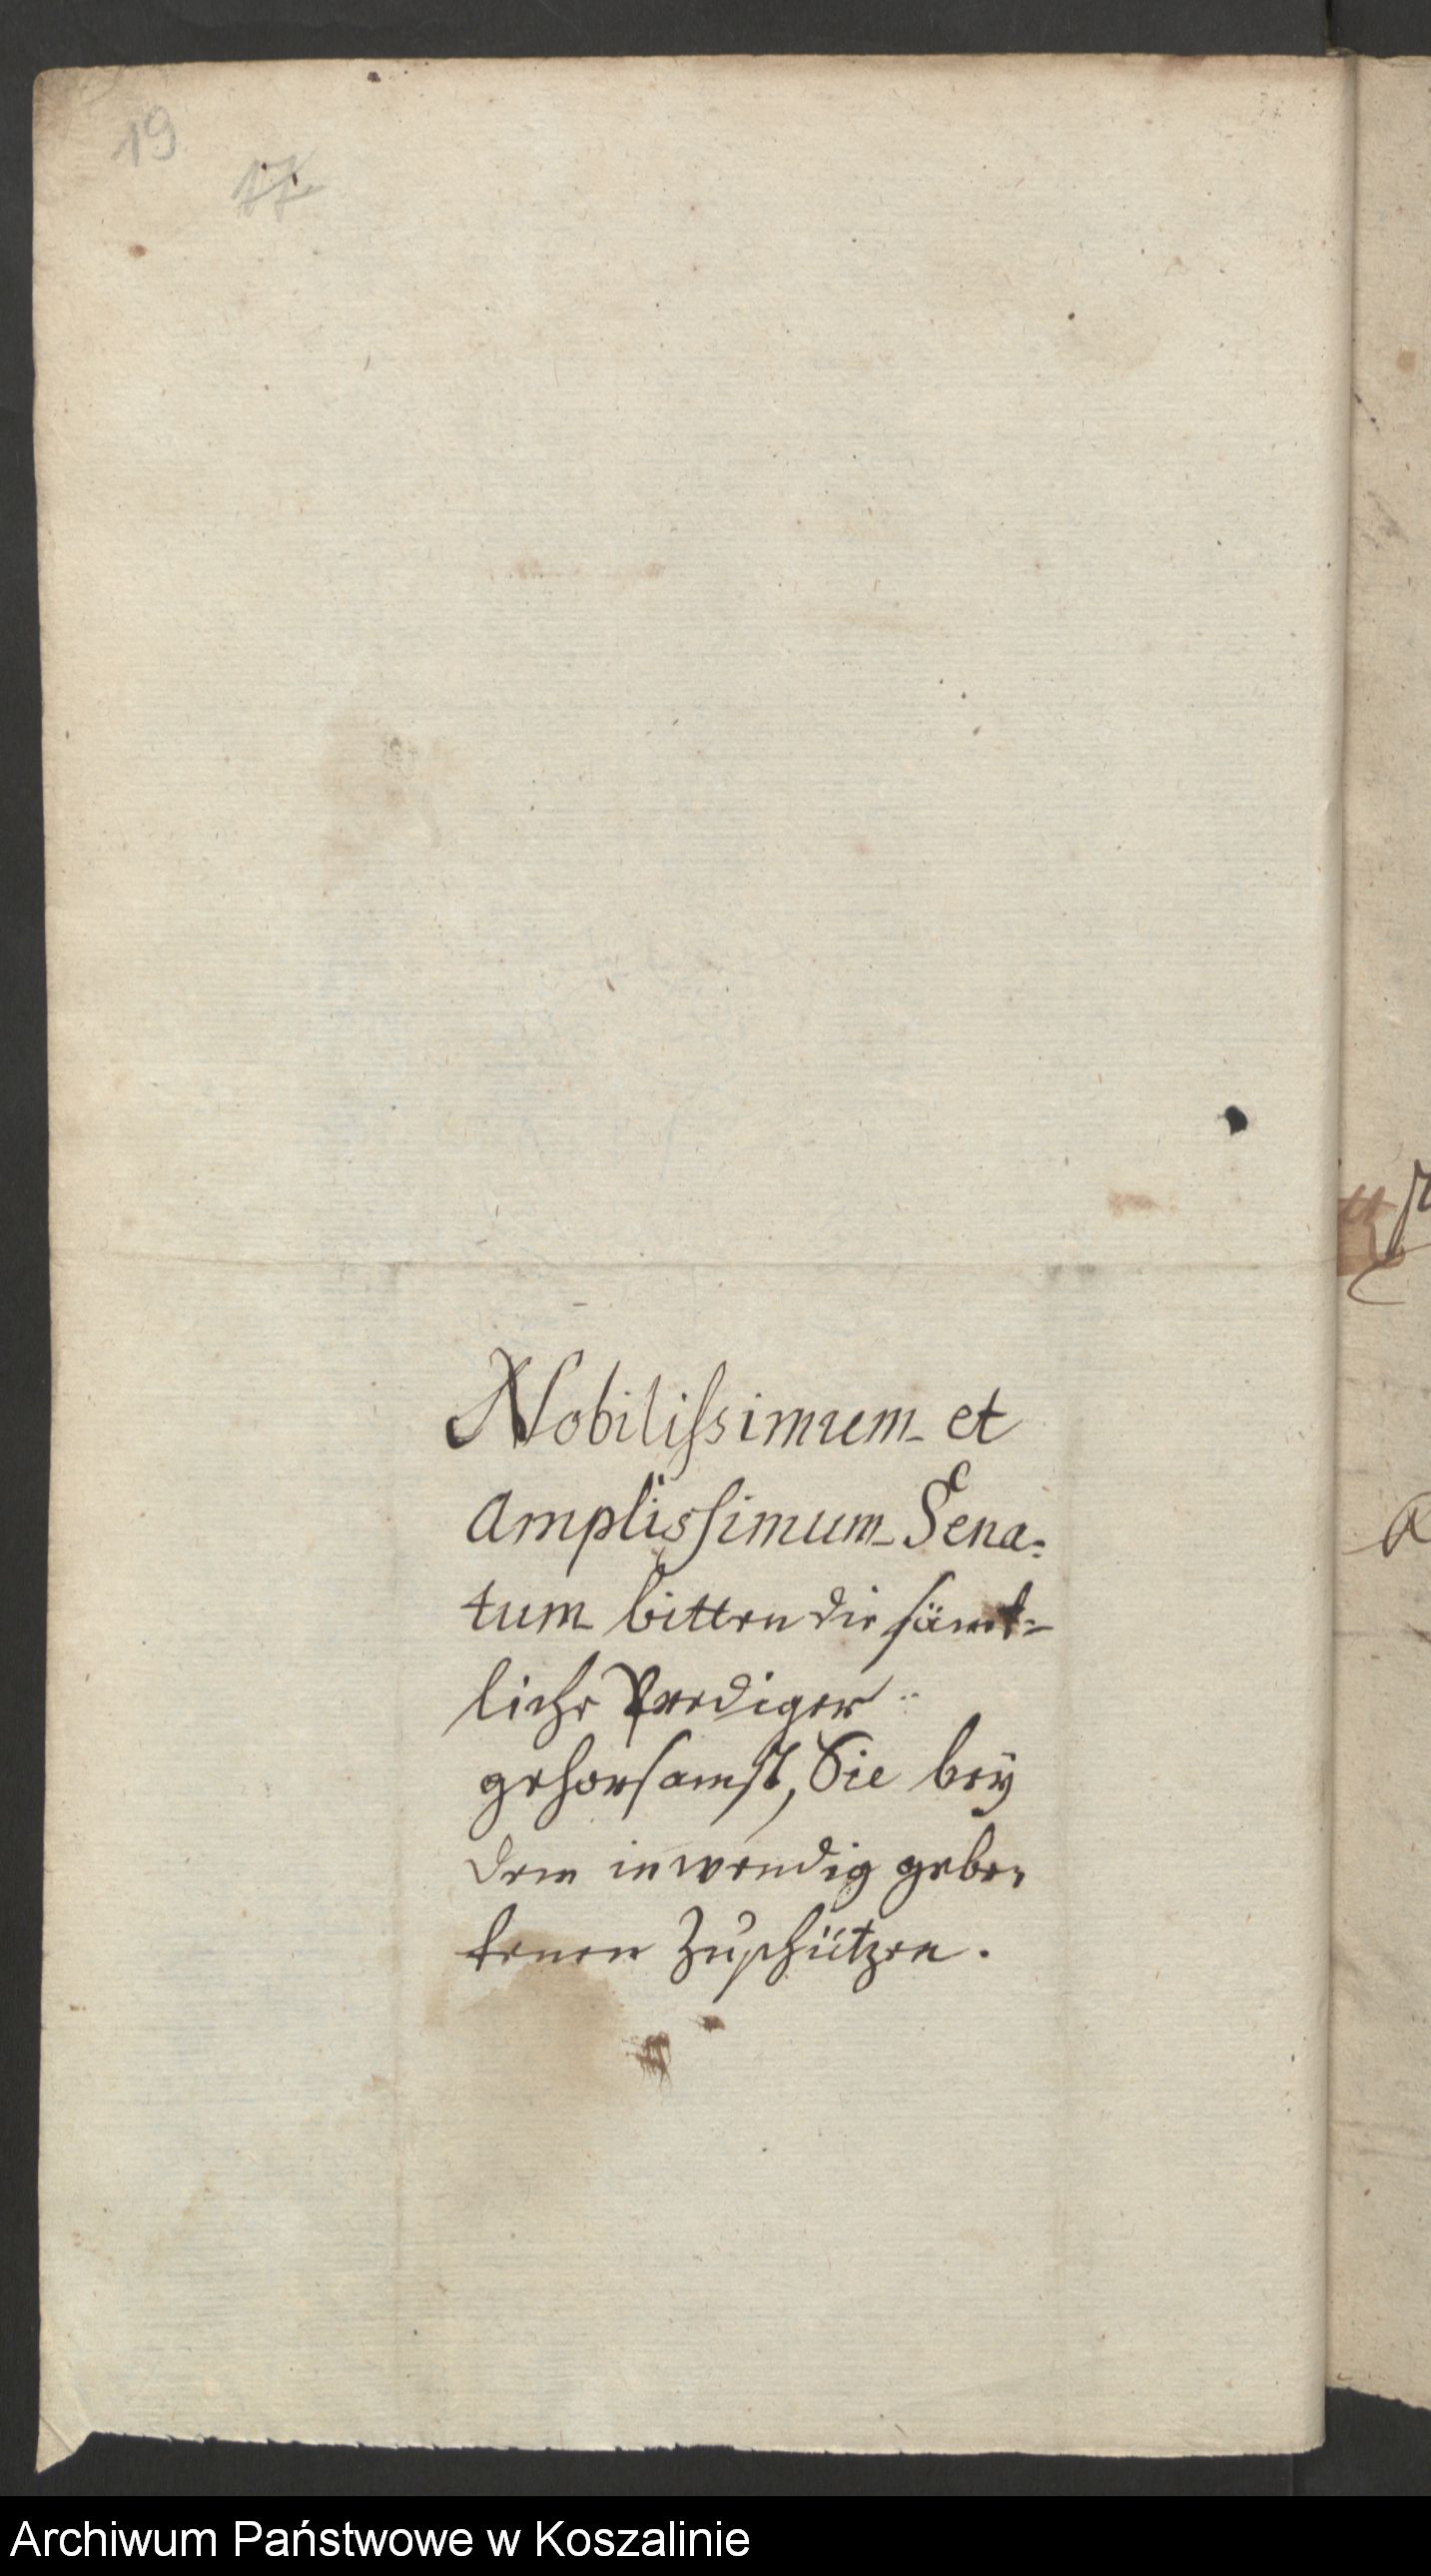 19
17
Nobilissimum et
Amplissimum Sena=
tum bitten die sämt=
liche Prediger
gehorsamst, Sie bey
dem inwendig gebe,
tenen zuschützen.
Archiwum Państwowe w Koszalinie